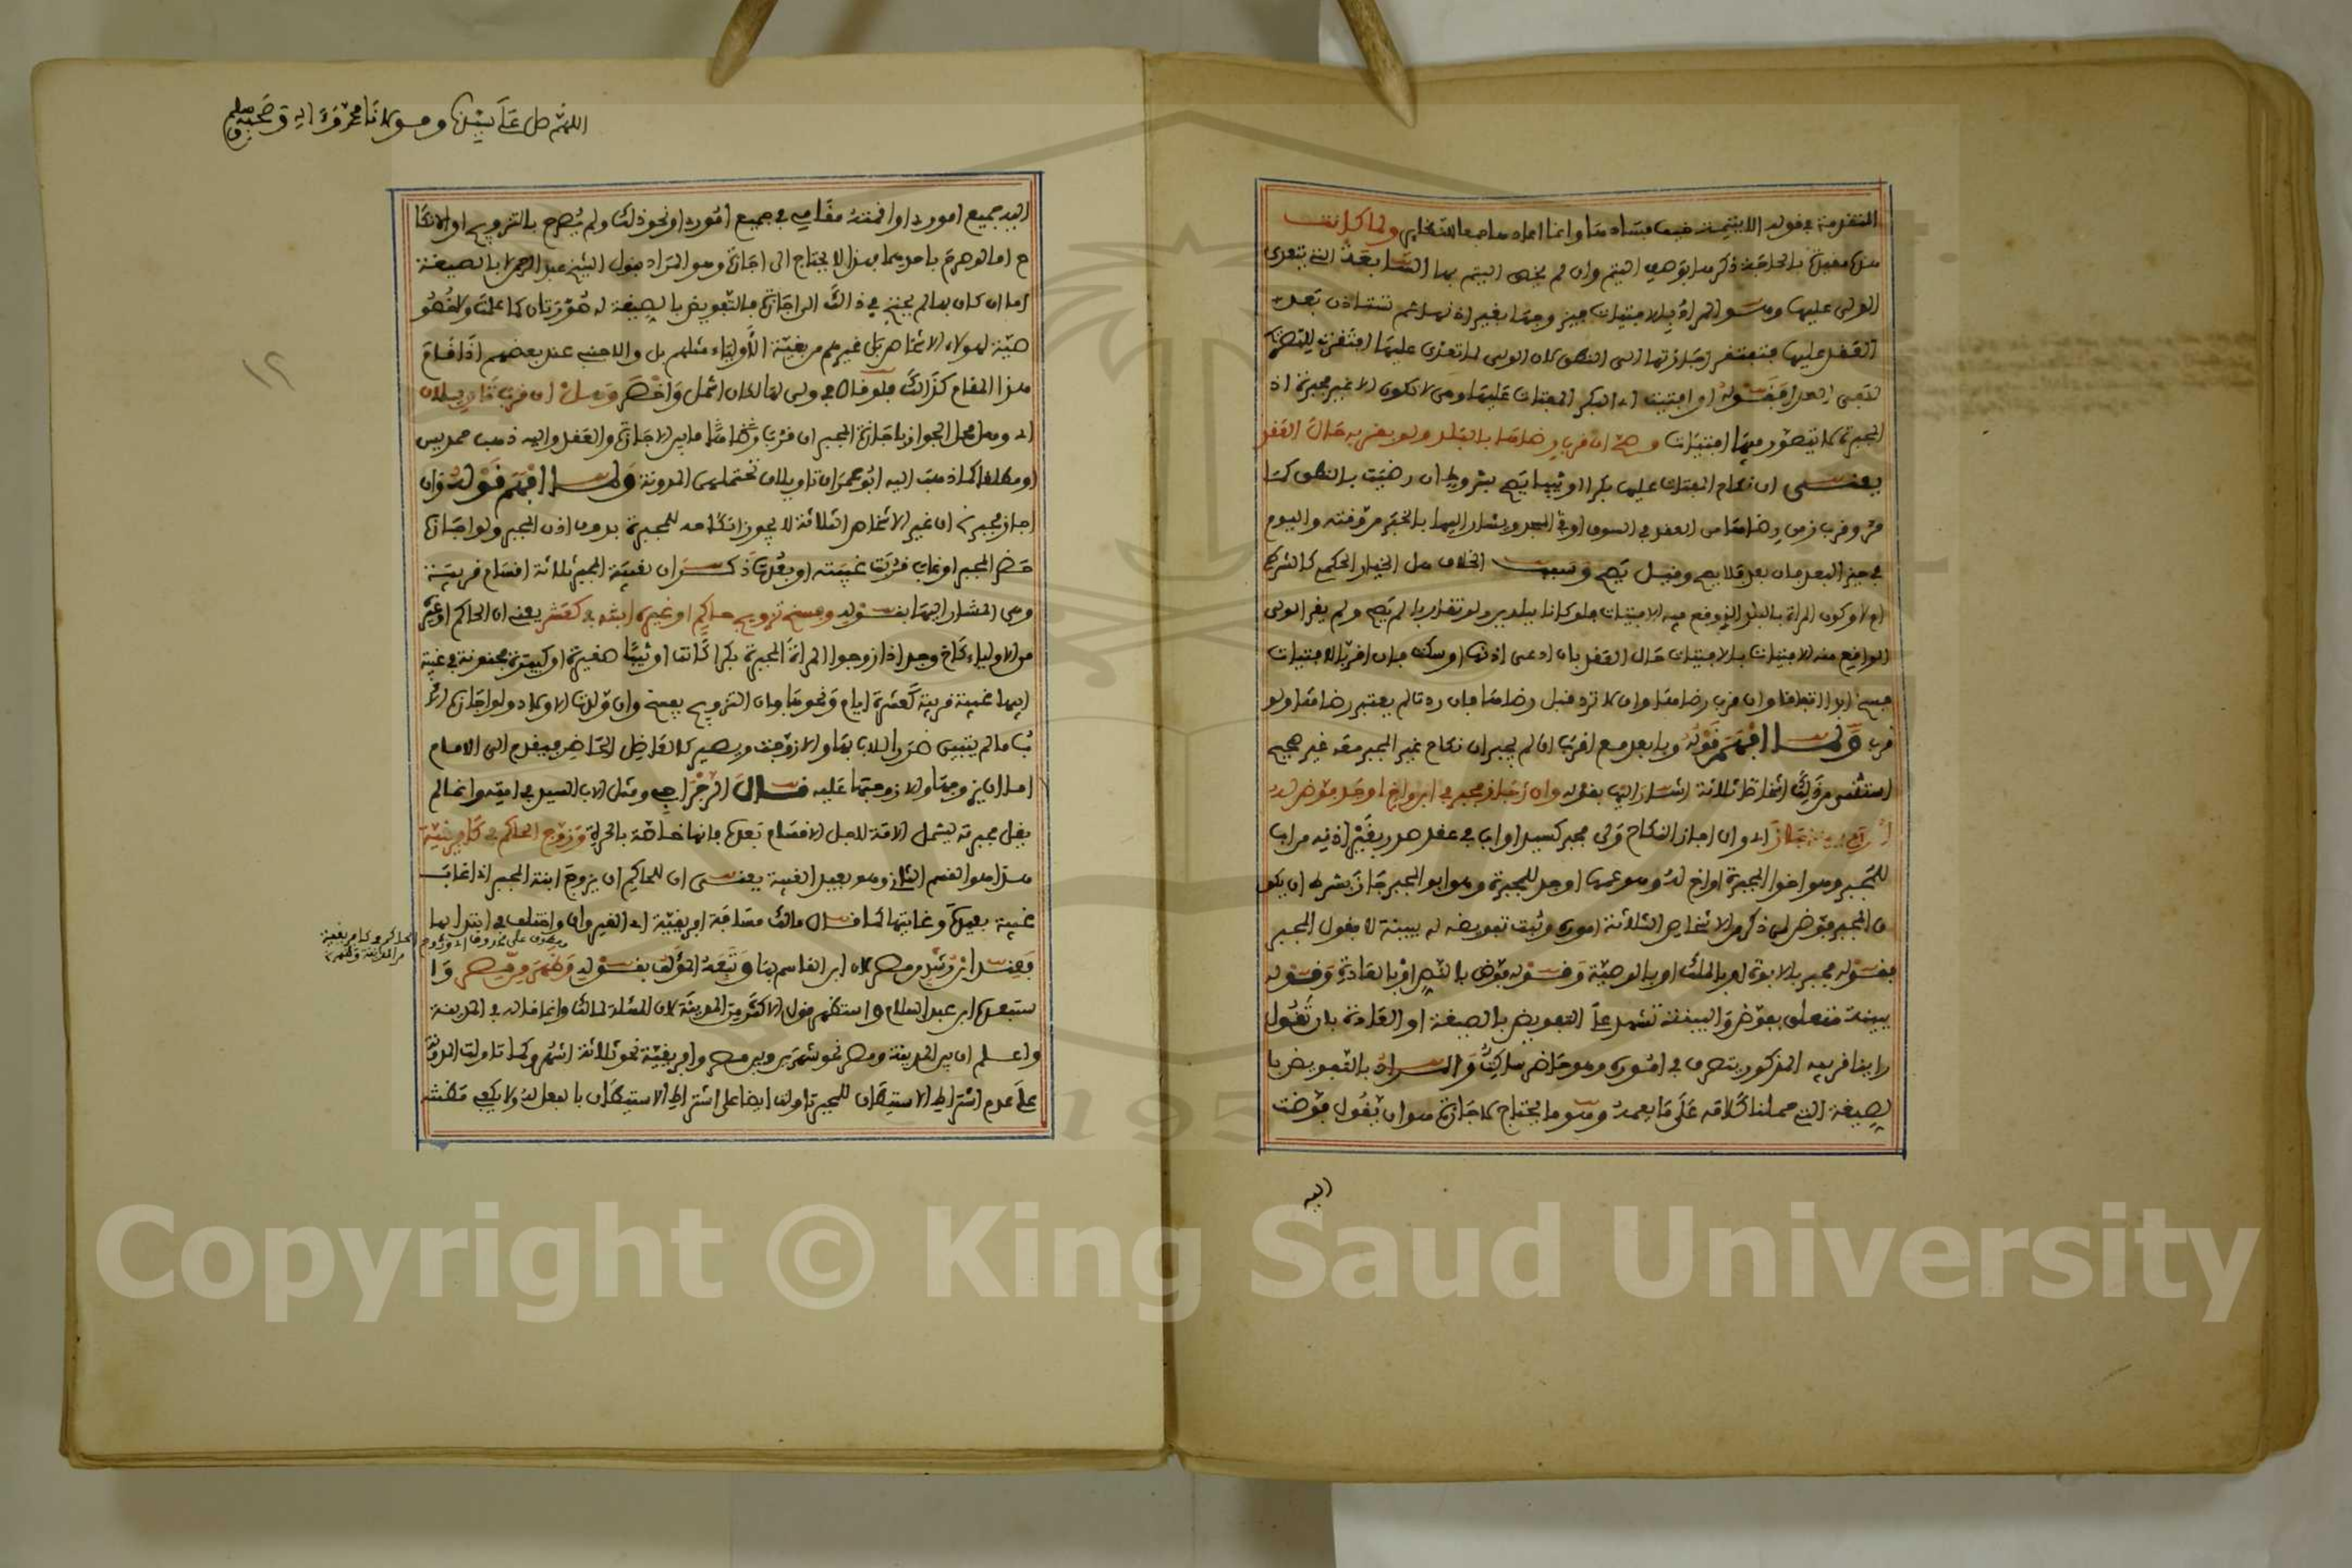 المتقدمة في قوله الا يتيمة خيف فسادها وانما اعاد هاهنا للنظاير ولما كانت
هذه مفيدة بالحاجة ذكر هنا ابو هي اليتيم وان لم يخص اليتم بها السابعة التي يتعدى
الولي عليها وهو المراد بالافتيات فيزوجها بغير اذنها ثم تستاذن بعد
العقد عليها فتفتقر اجازتها الى النطق لان الولي لما تعدى عليها افتقرت
بقوله او افتيت اي البكر المفتات عليها وهي لا تكون الا غير مجبرة اذ
المجبرة لا يتصور فيها افتيات وصح ان قرب رضاها بالبلد ولم يقر به حال العقد
يعني ان نكاح المفتات عليها بكرا او ثيبا يصح بشروط ان رضيت بالنطق كما
مر وقرب زمن رضاها من العقد في السوق او في المسجد ويشار اليها بالخبر من وقته واليوم
في حيز البعد فان بعد فلا يصح وقيل يصح الخلاف هل الخيار الحكمي كالشرطي
ام لا وكون المراة بالبلد الذي وقع فيه الافتيات فلو كانا ببلدين ولو تقاربا لم يصح ولم يقر الولي
الواقع منه الافتيات بالافتيات حال العقد بان ادعى اذنها او سكت فان اقر بالافتيات
فسخ ابدا اتفاقا وان قرب رضاها وان لا ترد قبل رضاها فان ردت لم يعتبر رضاها ولو
قرب ولما افهم قوله وبابعد مع اقرب ان لم يجبر ان نكاح غير المجبر معه غير صحيح
استثنى من ذلك اشخاصا ثلاثة اشار اليها بقوله وان اجاز مجبر في ابن واخ وجد فوض له
اموره ببينة جاز اي وان اجاز النكاح ولي مجبر كسيد او اب في عقد صدر بغير اذنه من ابن
للمجبر وهو اخو المجبرة او اخ له وهو عمها او جد للمجبرة وهو ابو المجبر جاز بشرط ان يكو
ن المجبر فوض لمن ذكر من الاشخاص الثلاثة اموره وثبت تفويضه له ببينة لا بقول المجبر
فقوله مجبر بالابوة او بالملك او بالوصية وقوله فوض بالنص او بالعادة وقوله
ببينة متعلق بفوض والبينة تشهد على التفويض بالصيغة او العادة بان تقول
راينا قريبه المذكور يتصرف في اموره وهو حاضر ساكت والمراد بالتفويض با
لصيغة الذي حملنا كلامه على ما يعمه وهو ما يحتاج لاجازة هو ان يقول فوضت
اليه
اللهم صل على سيدنا ومولانا محمد وعلى اله وصحبه وسلم
١٢
اليه جميع اموري او اقمته مقامي في جميع اموري او نحو ذلك ولم يصرح بالتزويج او الانكا
ح اما لو صرح باحدهما فهذا لا يحتاج الى اجازة وهو المراد بقول الشيخ عبد الرحمن بالصيغة
اما ان كان بها لم يحتج في ذلك الى اجازة فالتفويض بالصيغة له صورتان كما علمت ولا خصو
صية لهؤلاء الاشخاص بل غيرهم من بقية الاولياء مثلهم بل والاجنبي عند بعضهم اذا قام
هذا المقام كذلك فلو قال في ولي لها لكان اشمل واخصر وهل ان قرب تاويلان
اي وهل محل الجواز باجازة المجبر ان قرب ما بين الاجازة والعقد واليه ذهب حمديس
او مطلقا كما ذهب اليه ابو عمران تاويلان تحتملهما المدونة ولما افهم قوله وان
اجاز مجبر ان غير الاشخاص الثلاثة لا يجوز انكاحه للمجبرة بدون اذن المجبر ولو اجازه
حضر المجبر او غاب قربت غيبته او بعدت ذكر ان لغيبة المجبر ثلاثة اقسام قريبة
وهي المشار اليها بقوله وفسخ تزويج حاكم او غيره ابنته في كعشر يعني ان الحاكم او غيره
من الاولياء كاخ وجد اذا زوجوا المراة المجبرة بكرا كانت او ثيبا صغيرة او كبيرة مجنونة في غيبة
ابيها غيبة قريبة كعشرة ايام ونحوها فان التزويج يفسخ وان ولدت الاولاد ولو اجازه الا
ب ما لم يتبين ضرر الاب بها والا زوجت ويصير كالعاضل الحاضر فيتقدم الى الامام
اما ان يزوجها والا زوجها عليه قال الرجراجي ومثل الاب السيد في امته وانما لم
يقل مجبرته ليشمل الامة لاجل الاقسام بعدها فانها خاصة بالحرة وزوج الحاكم في كافريقية
هذا هو القسم الثاني وهو بعيد الغيبة يعني ان للحاكم ان يزوج ابنة المجبر اذا غاب
غيبة بعيدة وغايتها كما قال مالك مسافة افريقية اي القيروان واختلف في ابتدائها
معطوف على محذوف اي وزوج الحاكم في كافريقية
من المدينة وظهر
فعند ابن رشد من مصر لان ابن القاسم بها وتبعه المؤلف بقوله وظهر من مصر وا
ستبعده ابن عبد السلام واستظهر قول الاكثر من المدينة لان المسئلة لمالك وانما قاله في المدينة
واعلم ان بين المدينة ومصر نحو شهر وبين مصر وافريقية نحو ثلاثة اشهر وكما تاولت المدونة
على عدم اشتراط الاستيطان للمجبر تاولت ايضا على اشتراط الاستيطان بالفعل له ولا يكفي مظنته